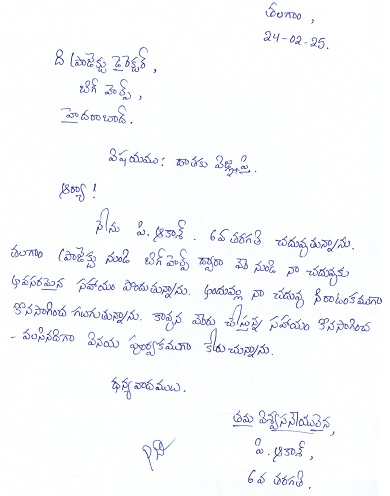 తలగాం,
24-02-25.
ది ప్రాజెక్టు డైరెక్టర్,
బిగ్ హెల్ప్,
హైదరాబాద్.
విషయము: దాతకు విజ్ఞప్తి.
ఆర్యా!
నేను పి. ఆకాశ్. 6వ తరగతి చదువుతున్నాను.
తలగాం ప్రాజెక్టు నుండి బిగ్ హెల్ప్ ద్వారా మీ నుండి నా చదువుకు
అవసరమైన సహాయం పొందుతున్నాను. అందువల్ల నా చదువు నిరాటంకముగా
కొనసాగించ గలుగుతున్నాను. కావున మీరు చేస్తున్న సహాయం కొనసాగించ
- వలసినదిగా వినయ పూర్వకముగా కోరుచున్నాను.
ధన్యవాదములు.
తమ విశ్వసనీయులైన,
పి. ఆకాశ్,
6వ తరగతి.